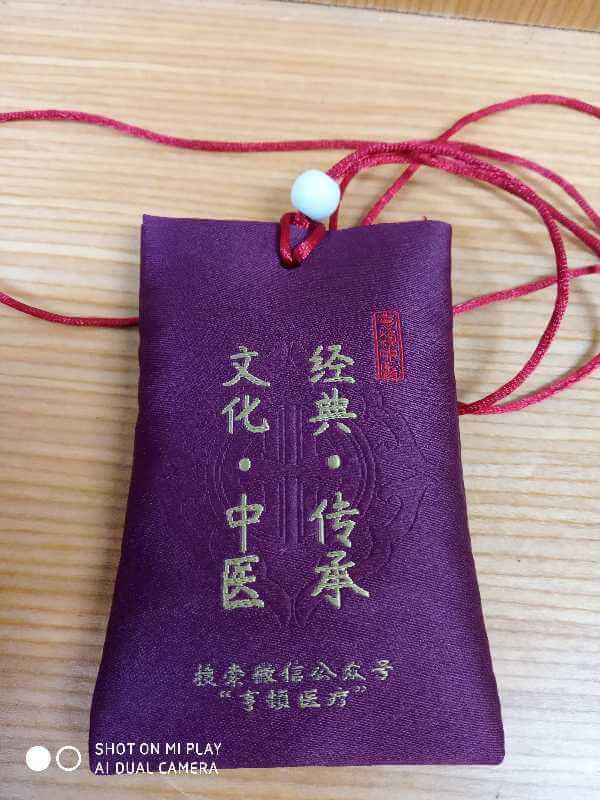 经典·传承
文化·中医
搜索微信公众号
“亨顿医疗”
SHOT ON MI PLAY
AI DUAL CAMERA